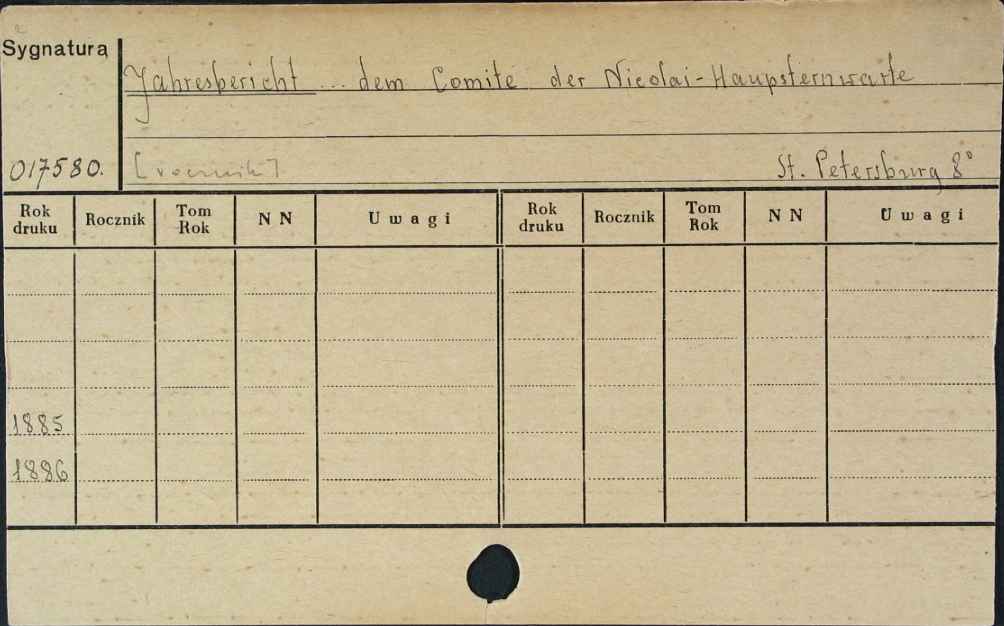 Sygnatura
Jahresbericht ... dem Comite der Nicolai-Haupsternwarte
017580. [rocznik] St. Petersburg 8°
Rok druku Rocznik Tom Rok NN Uwagi Rok druku Rocznik Tom Rok NN Uwagi
1885
1886